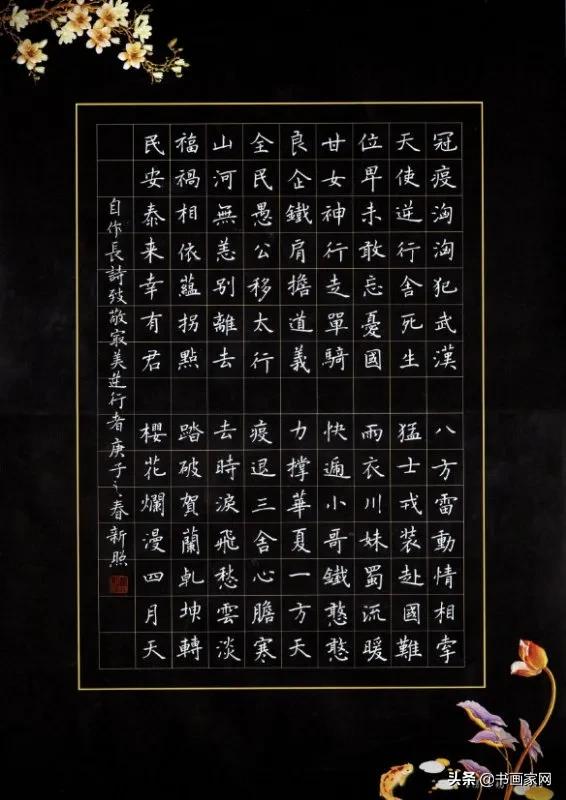 冠疫洶洶犯武漢 八方雷動情相牽
天使逆行舍死生 猛士戎裝赴國難
位卑未敢忘憂國 雨衣川妹蜀流暖
甘女神行走單騎 快遞小哥鐵憨憨
良企鐵肩擔道義 力撐華夏一方天
全民愚公移太行 疫退三舍心膽寒
山河無恙别離去 去時淚飛愁雲淡
福禍相依蘊拐點 踏破賀蘭乹坤轉
民安泰来幸有君 櫻花爛漫四月天
自作長詩致敬冣美逆行者庚子之春新照
头条@书画家网